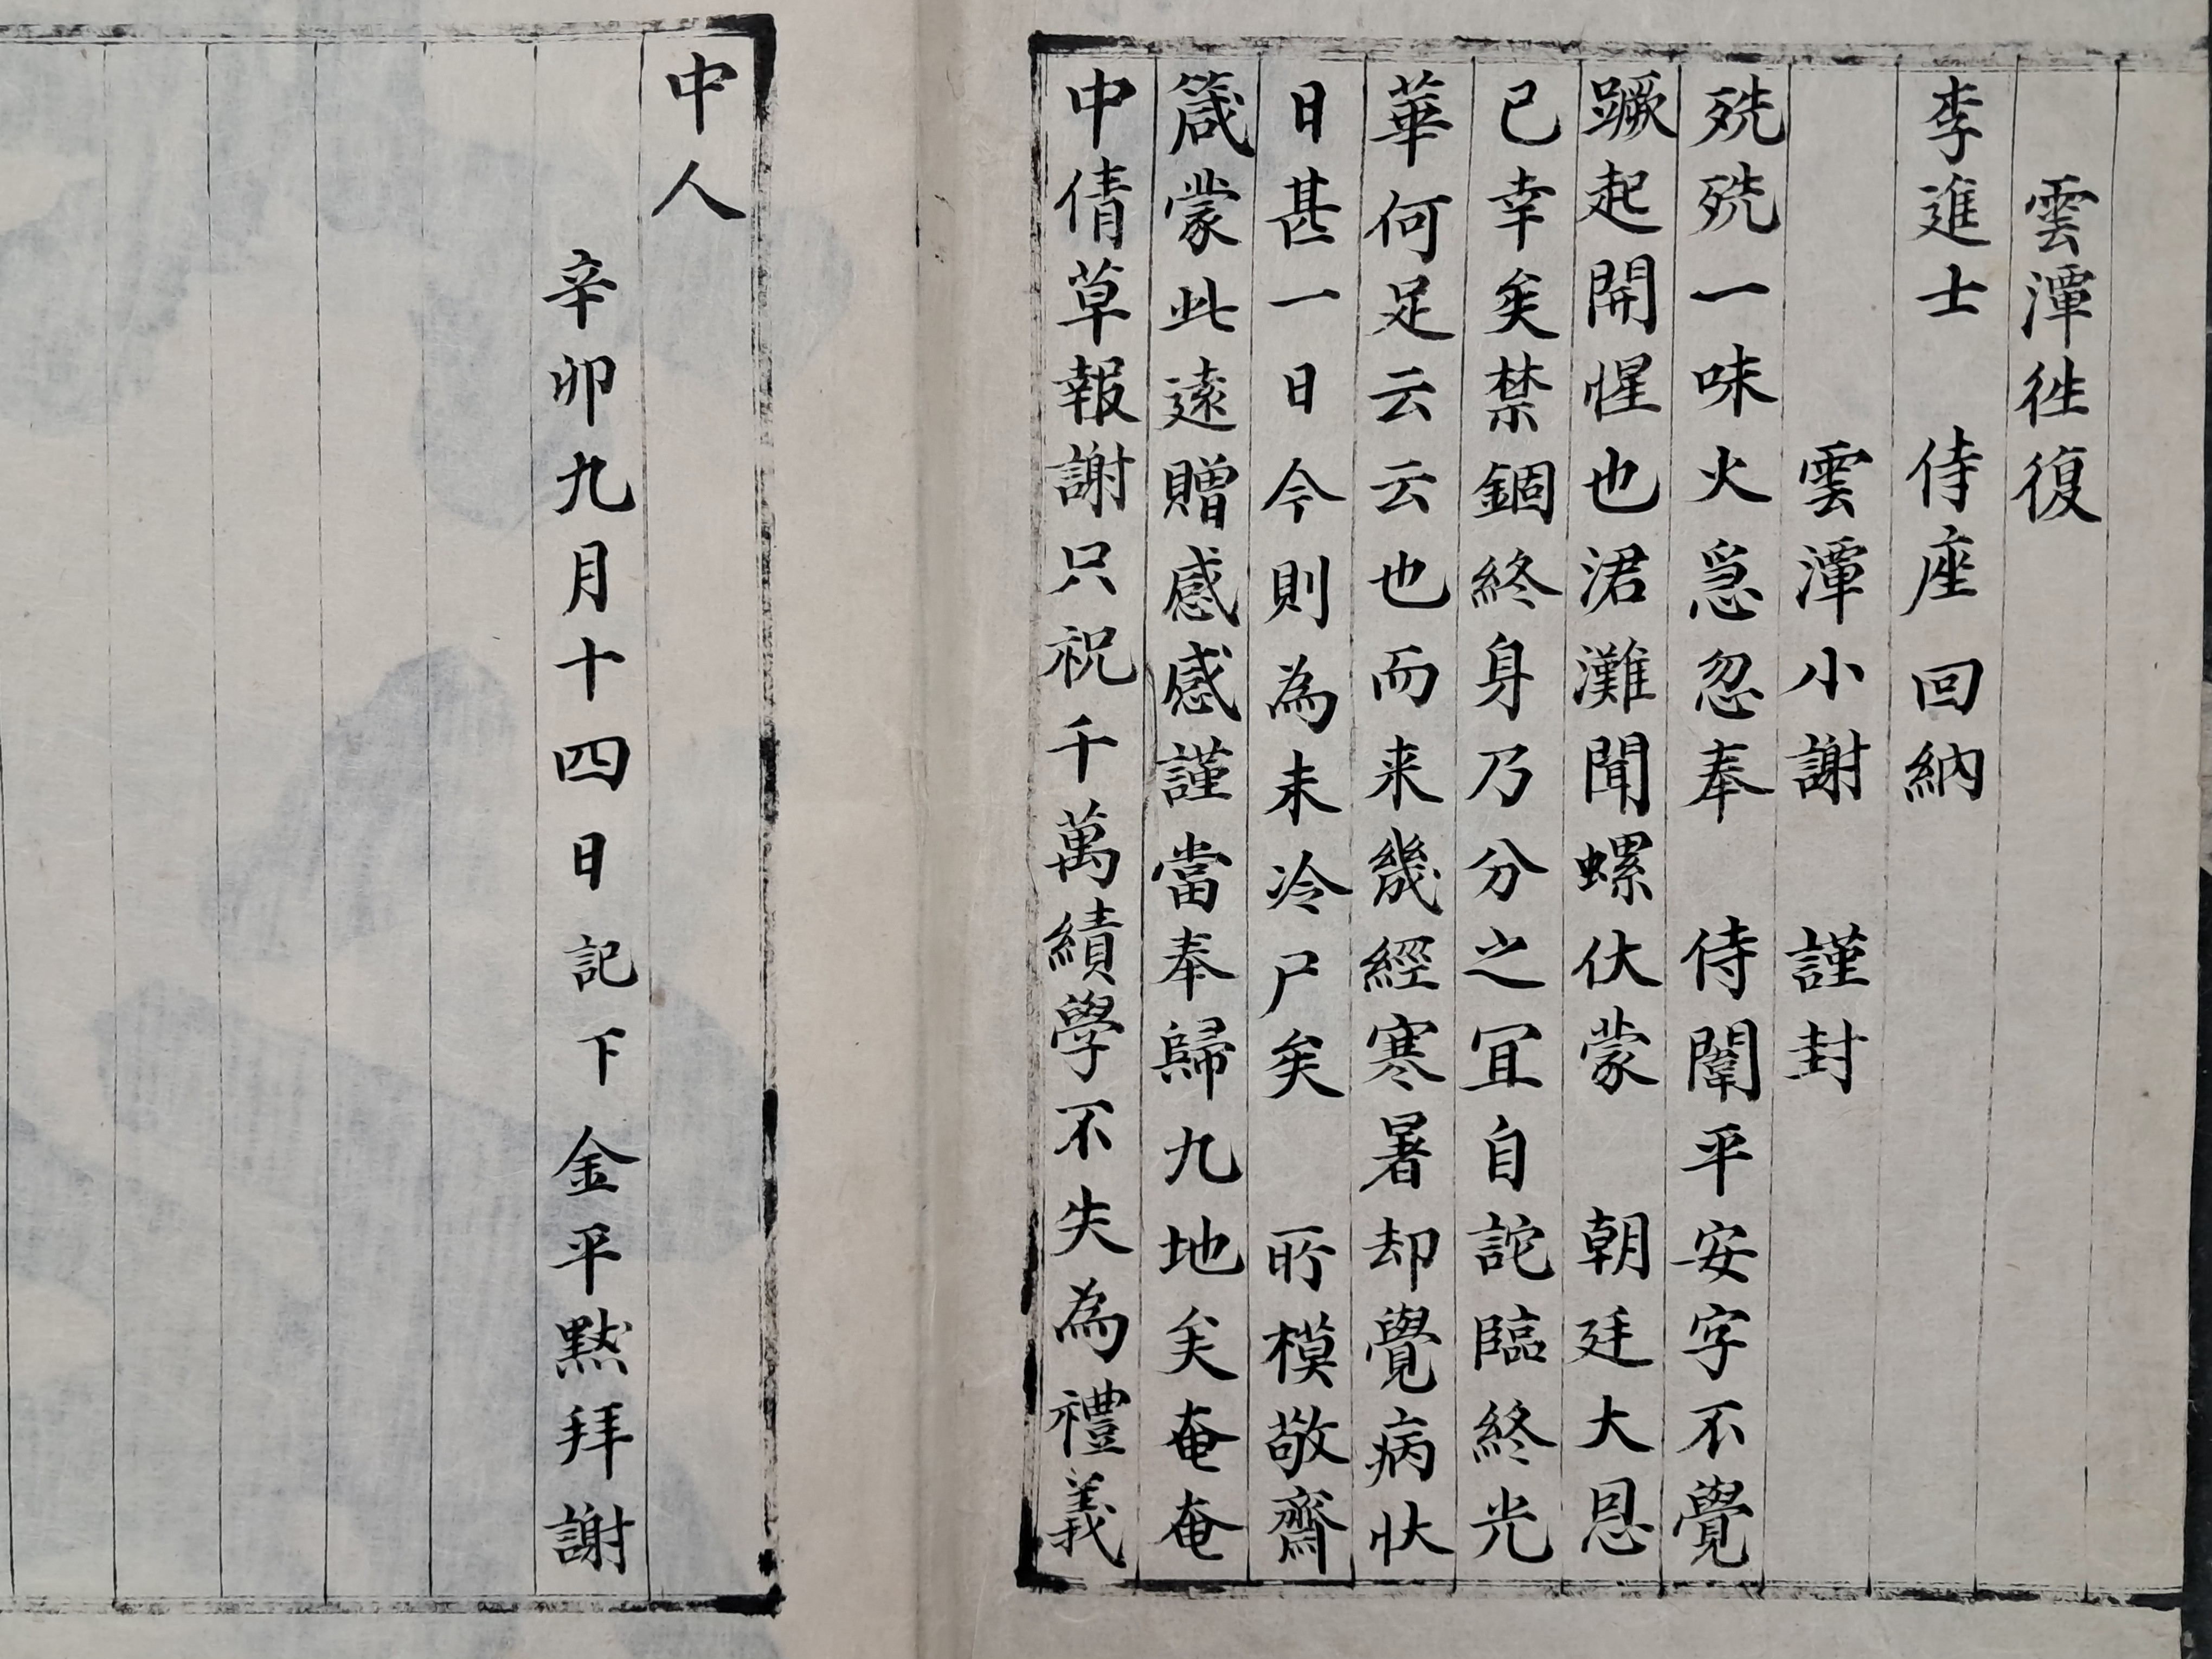 雲潭徃復
李進士　侍座回納
雲潭小謝　謹封
㱡㱡一味火急忽奉　侍闈平安字不覺
蹶起開惺也涒灘聞螺伏蒙　朝廷大恩
已幸矣禁錮終身乃分之冝自詑臨終光
華何足云云也而来幾經寒暑却覺病狀
日甚一日今則為未冷尸矣　所模敬齋
箴蒙此遠贈感感謹當奉歸九地矣奄奄
中倩草報謝只祝千萬績學不失為禮義
中人
辛卯九月十四日記下金平黙拜謝